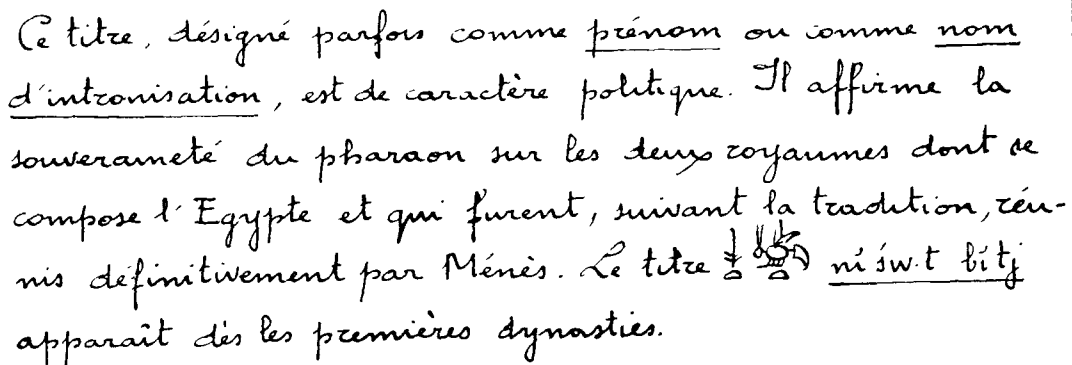 Ce titre, désigné parfois comme prénom ou comme nom
d'intronisation, est de caractère politique. Il affirme la
souveraineté du pharaon sur les deux royaumes dont se
compose l'Egypte et qui furent, suivant la tradition, réu-
nis définitivement par Ménès. Le titre 𓇓𓏏𓆤𓏏 ni św.t bítj
apparaît dès les premières dynasties.